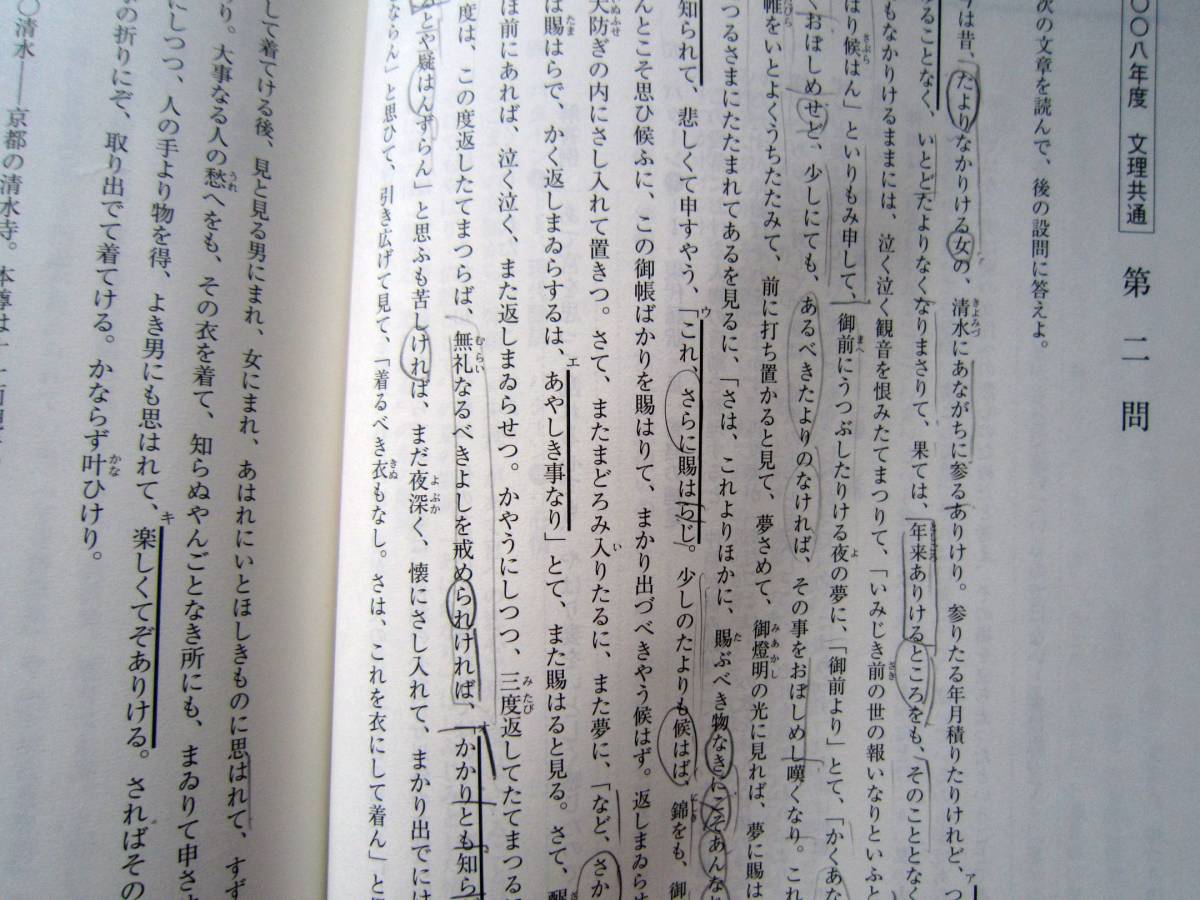 〇〇八年度 文理共通 第二問
次の文章を読んで、後の設問に答えよ。
今は昔、たよりなかりける女の、清水にあながちに参るありけり。参りたる年月積りたりけれど、つ
ることなく、いとどたよりなくなりまさりて、果ては、年来ありけるところをも、そのこととなく
もなかりけるままには、泣く泣く観音を恨みたてまつりて、「いみじき前の世の報いなりといふと
はり候はん」といりもみ申して、御前にうつぶしたりける夜の夢に、「御前より」とて、「かくあな
くおぼしめせど、少しにても、あるべきたよりのなければ、その事をおぼしめし嘆くなり。これ
帷をいとよくうちたたみて、前に打ち置かると見て、夢さめて、御燈明の光に見れば、夢に賜は
つるさまにたたまれてあるを見るに、「さは、これよりほかに、賜ぶべき物なきにこそあんなり
知られて、悲しくて申すやう、「これ、さらに賜はらじ。少しのたよりも候はば、錦をも、御
んとこそ思ひ候ふに、この御帳ばかりを賜はりて、まかり出づべきやう候はず。返しまゐらせ
犬防ぎの内にさし入れて置きつ。さて、またまどろみ入りたるに、また夢に、「など、さか
は賜はらで、かく返しまゐらするは、あやしき事なり」とて、また賜はると見る。さて、醒
ほ前にあれば、泣く泣く、また返しまゐらせつ。かやうにしつつ、三度返してたてまつる
度は、この度返したてまつらば、無礼なるべきよしを戒められければ、「かかりとも知ら
とや疑はんずらん」と思ふも苦しければ、まだ夜深く、懐にさし入れて、まかり出でにけ
ならん」と思ひて、引き広げて見て、「着るべき衣もなし。さは、これを衣にして着ん」と
して着てける後、見と見る男にまれ、女にまれ、あはれにいとほしきものに思はれて、すず
り。大事なる人の愁へをも、その衣を着て、知らぬやんごとなき所にも、まゐりて申させ
にしつつ、人の手より物を得、よき男にも思はれて、楽しくてぞありける。さればその
の折りにぞ、取り出でて着てける。かならず叶ひけり。
〇清水――京都の清水寺。本尊は十一面観